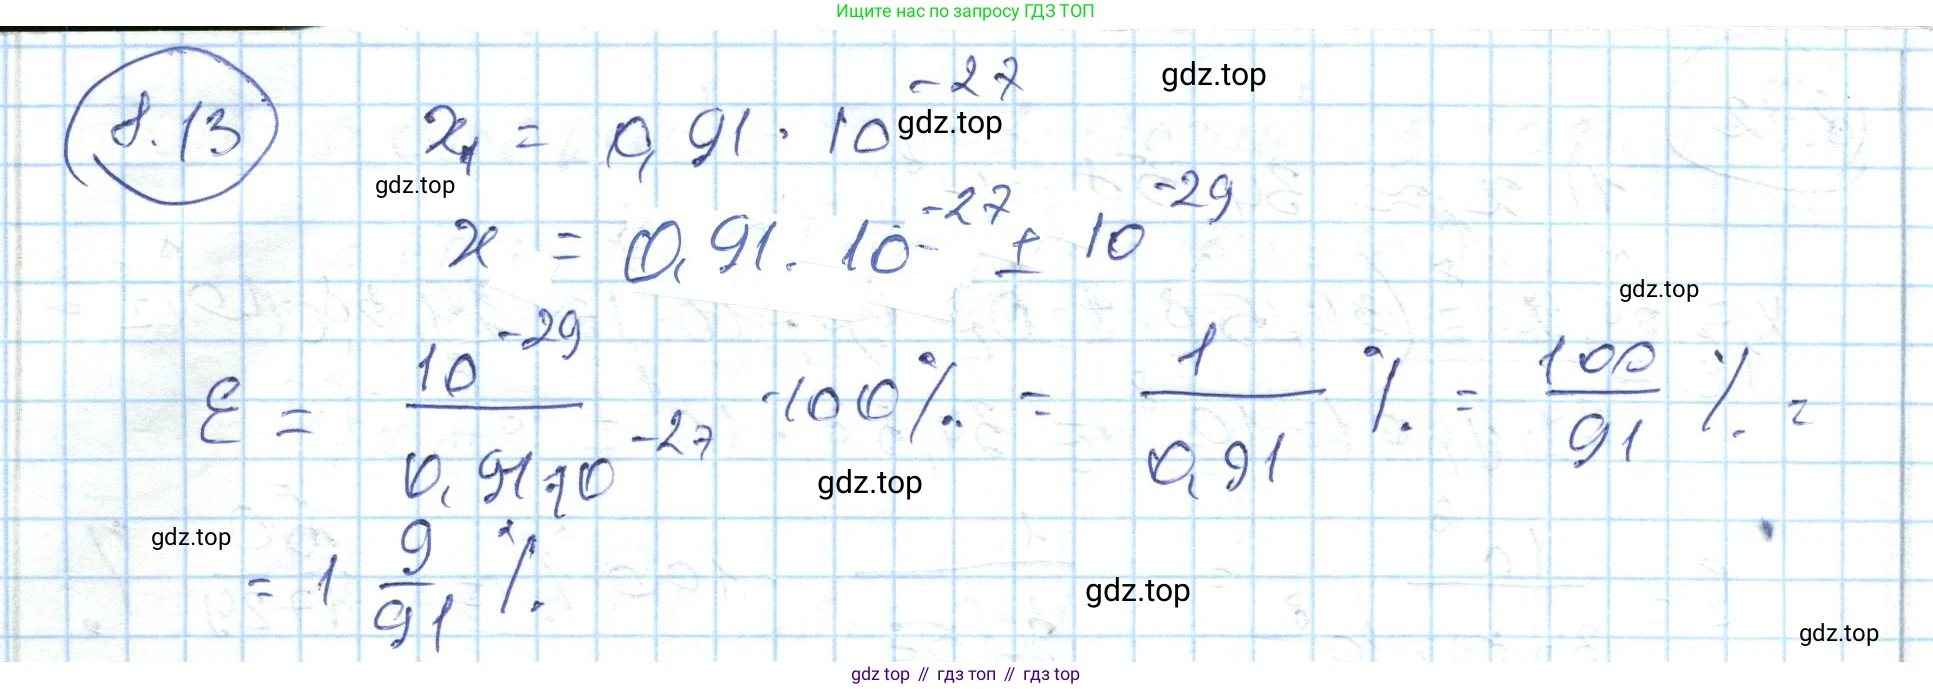 Ищите нас по запросу ГДЗ ТОП
8.13
x₁ = 0,91 · 10⁻²⁷
gdz.top
gdz.top
gdz.top
x = 0,91 · 10⁻²⁷ ± 10⁻²⁹
gdz.top
ε = 10⁻²⁹ / 0,91·10⁻²⁷ · 100% = 1 / 0,91 % = 100 / 91 % =
gdz.top
gdz.top
= 1 9/91 %
gdz.top
gdz.top
gdz top // гдз топ // гдз top